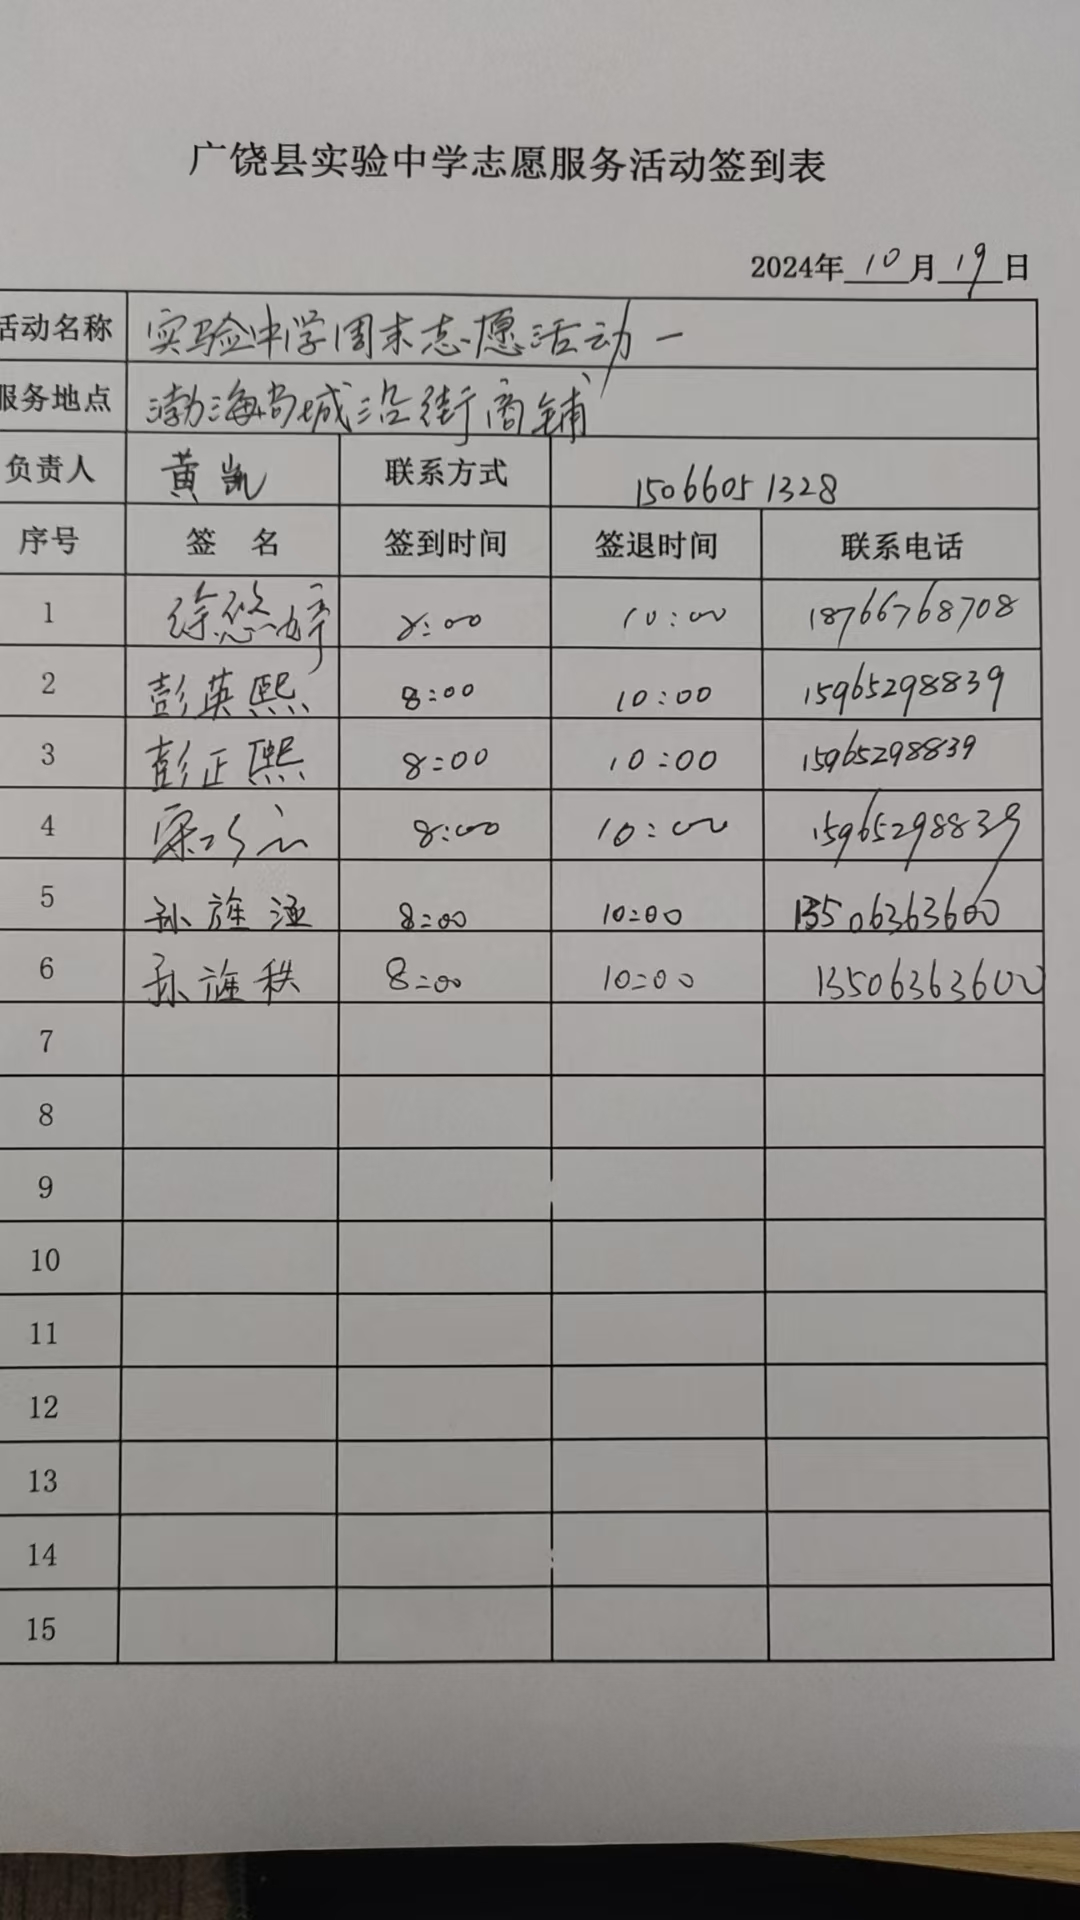 广饶县实验中学志愿服务活动签到表
2024年 10 月 19 日
活动名称 实验中学周末志愿活动一
服务地点 渤海尚城沿街商铺
负责人 黄凯 联系方式 15066051328
序号 签 名 签到时间 签退时间 联系电话
1 徐悠婷 8:00 10:00 18766768708
2 彭英熙 8:00 10:00 15965298839
3 彭正熙 8:00 10:00 15965298839
4 8:00 10:00 15965298839
5 孙旌 8:00 10:00 13506363600
6 孙旌秩 8:00 10:00 13506363600
7
8
9
10
11
12
13
14
15